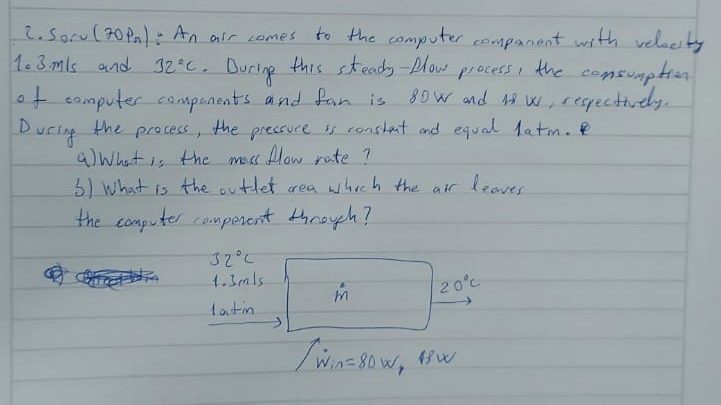 2. Soru (70Pn): An air comes to the computer component with velocity
1.3 m/s and 32°C. During this steady-flow process, the consumption
of computer components and fan is 80W and 18 W, respectively.
During the process, the pressure is constant and equal 1atm.
a) What is the mass flow rate ?
b) What is the outlet area which the air leaves
the computer component through?
32°C
1.3m/s
1atm
ṁ
20°C
Ẇin=80W, 18W